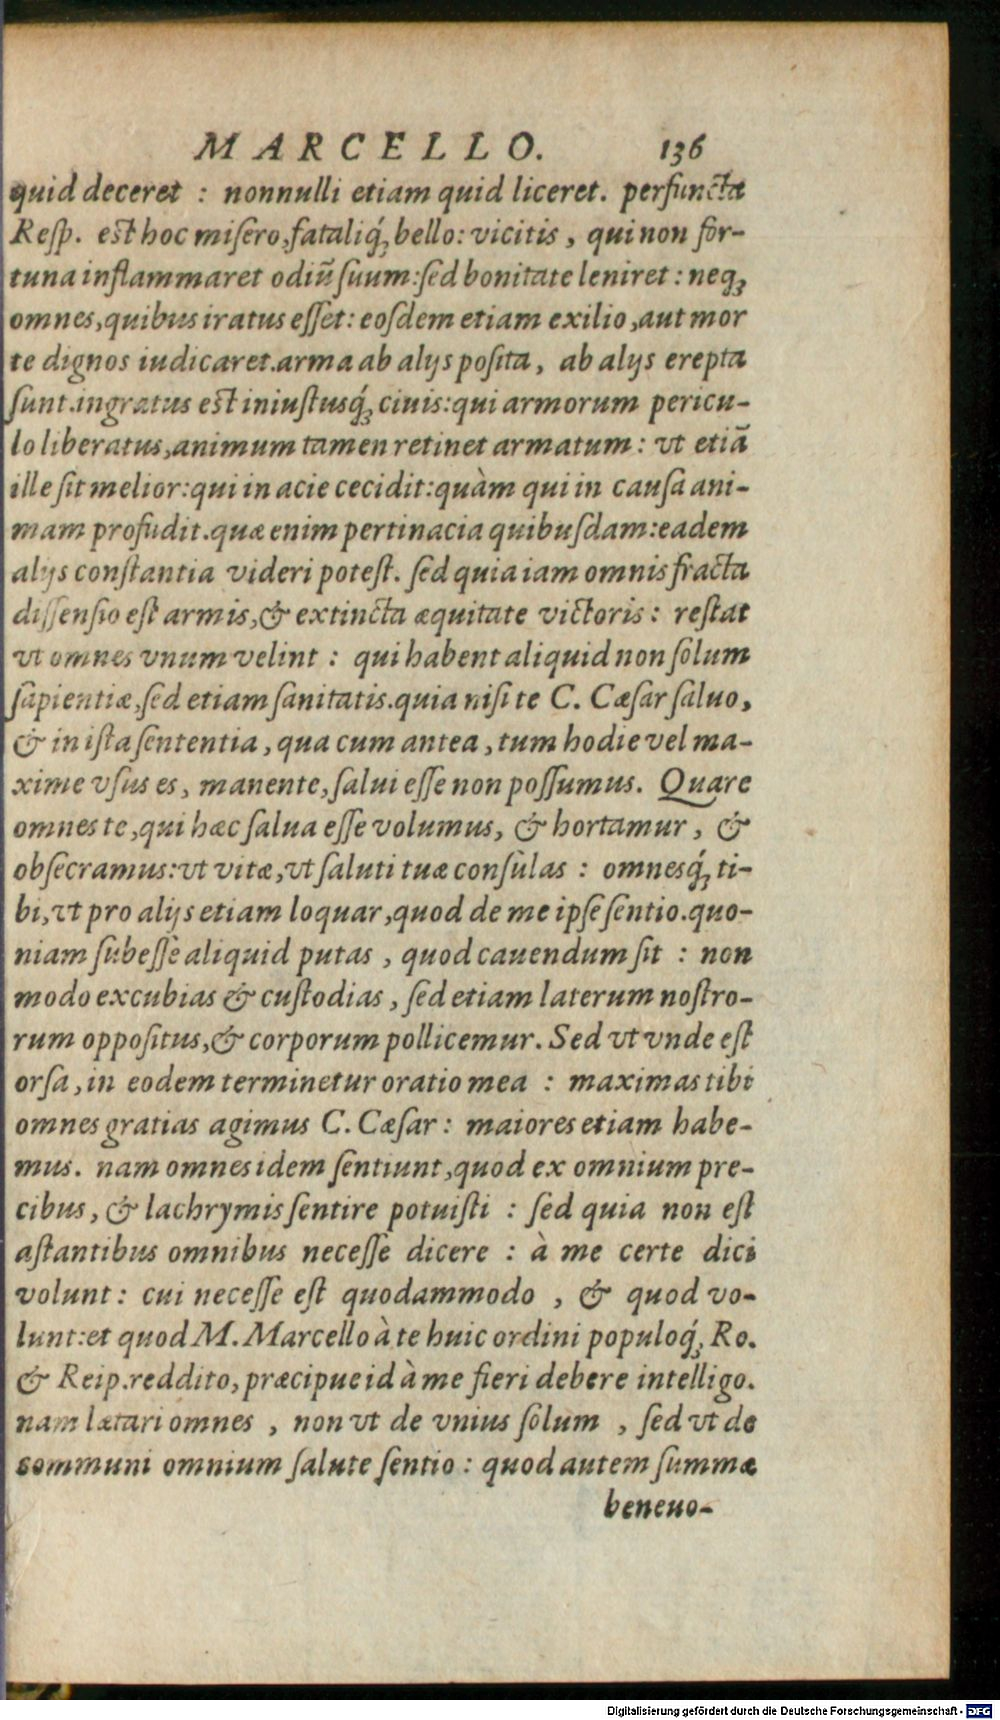 MARCELLO. 136
quid deceret : nonnulli etiam quid liceret. perfunctæ
Resp. est hoc misero, fataliq́; bello: vicitis, qui non for-
tuna inflammaret odiũ suum: sed bonitate leniret : neq;
omnes, quibus iratus esset: eosdem etiam exilio, aut mor
te dignos iudicaret. arma ab alijs posita, ab alijs erepta
sunt. ingratus est iniustusq́; ciuis: qui armorum pericu-
lo liberatus, animum tamen retinet armatum : vt etiã
ille sit melior: qui in acie cecidit: quàm qui in causa ani-
mam profudit. quæ enim pertinacia quibusdam: eadem
alijs constantia videri potest. sed quia iam omnis fracta
dissensio est armis, & extincta æquitate victoris : restat
vt omnes vnum velint : qui habent aliquid non solum
sapientiæ, sed etiam sanitatis. quia nisi te C. Cæsar saluo,
& in ista sententia, qua cum antea, tum hodie vel ma-
xime vsus es, manente, salui esse non possumus. Quare
omnes te, qui hæc salua esse volumus, & hortamur, &
obsecramus: vt vitæ, vt saluti tuæ consulas : omnesq́; ti-
bi, vt pro alijs etiam loquar, quod de me ipse sentio. quo-
niam subesse aliquid putas, quod cauendum sit : non
modo excubias & custodias, sed etiam laterum nostro-
rum oppositus, & corporum pollicemur. Sed vt vnde est
orsa, in eodem terminetur oratio mea : maximas tibi
omnes gratias agimus C. Cæsar : maiores etiam habe-
mus. nam omnes idem sentiunt, quod ex omnium pre-
cibus, & lachrymis sentire potuisti : sed quia non est
astantibus omnibus necesse dicere : à me certe dici
volunt : cui necesse est quodammodo, & quod vo-
lunt: et quod M. Marcello à te huic ordini populoq́; Ro.
& Reip. reddito, præcipue id à me fieri debere intelligo.
nam lætari omnes, non vt de vnius solum, sed vt de
communi omnium salute sentio : quod autem summæ
beneuo-
Digitalisierung gefördert durch die Deutsche Forschungsgemeinschaft - DFG